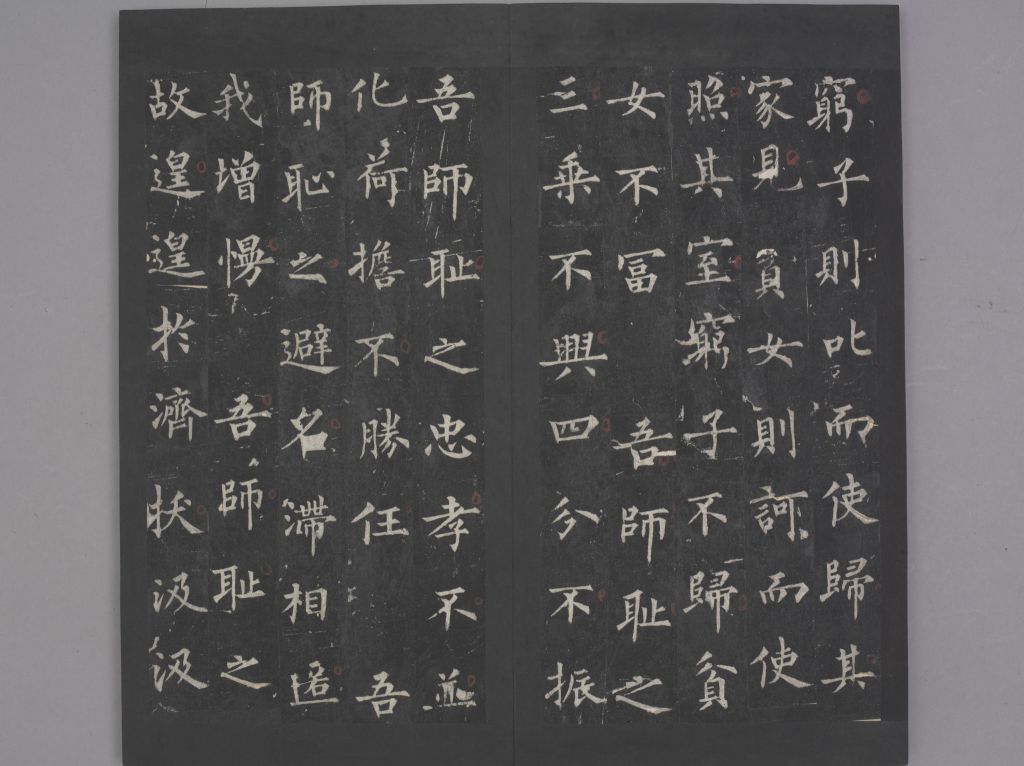 窮子則叱而使歸其
家見貧女則訶而使
照其室窮子不歸貧
女不冨吾師耻之
三乘不興四分不振
吾師耻之忠孝不並
化荷擔不勝任吾
師恥之避名滯相匿
我增慢吾師耻之
故遑遑扵濟扶汲汲